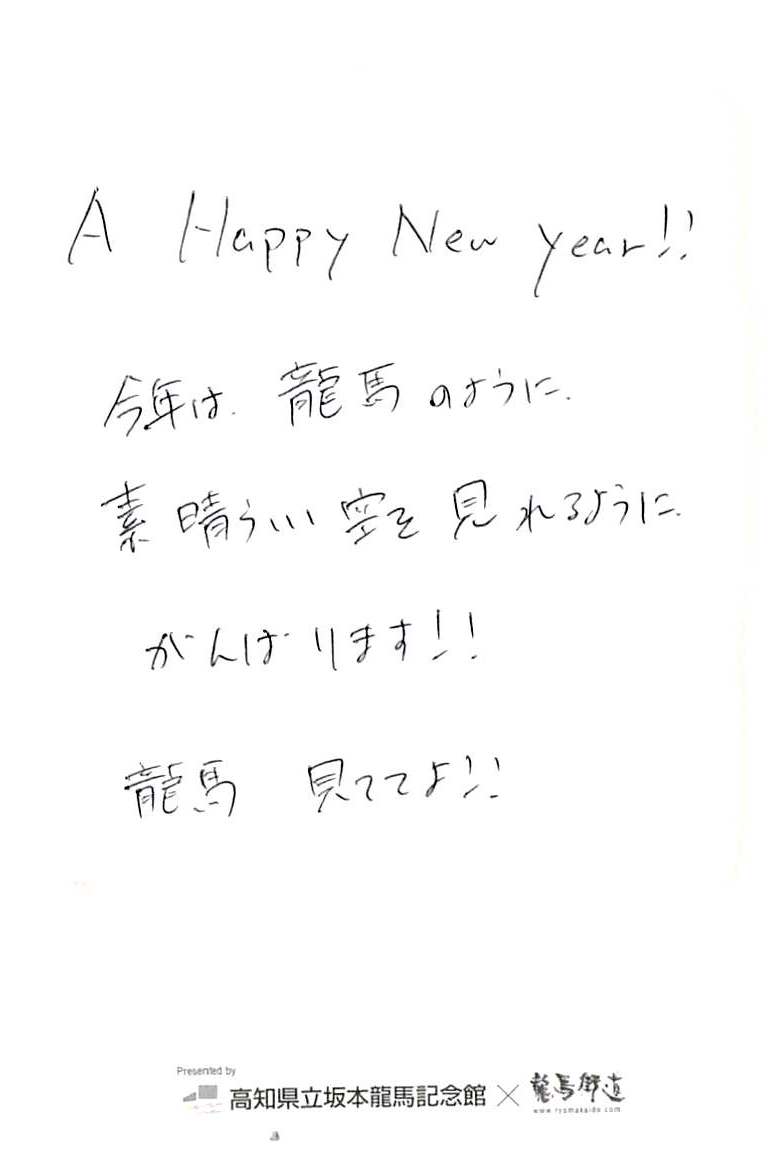 A Happy New year!!
今年は、龍馬のように、
素晴らしい空を見れるように、
がんばります!!
龍馬 見ててよ!!
Presented by
高知県立坂本龍馬記念館×龍馬街道
www.ryomakaido.com